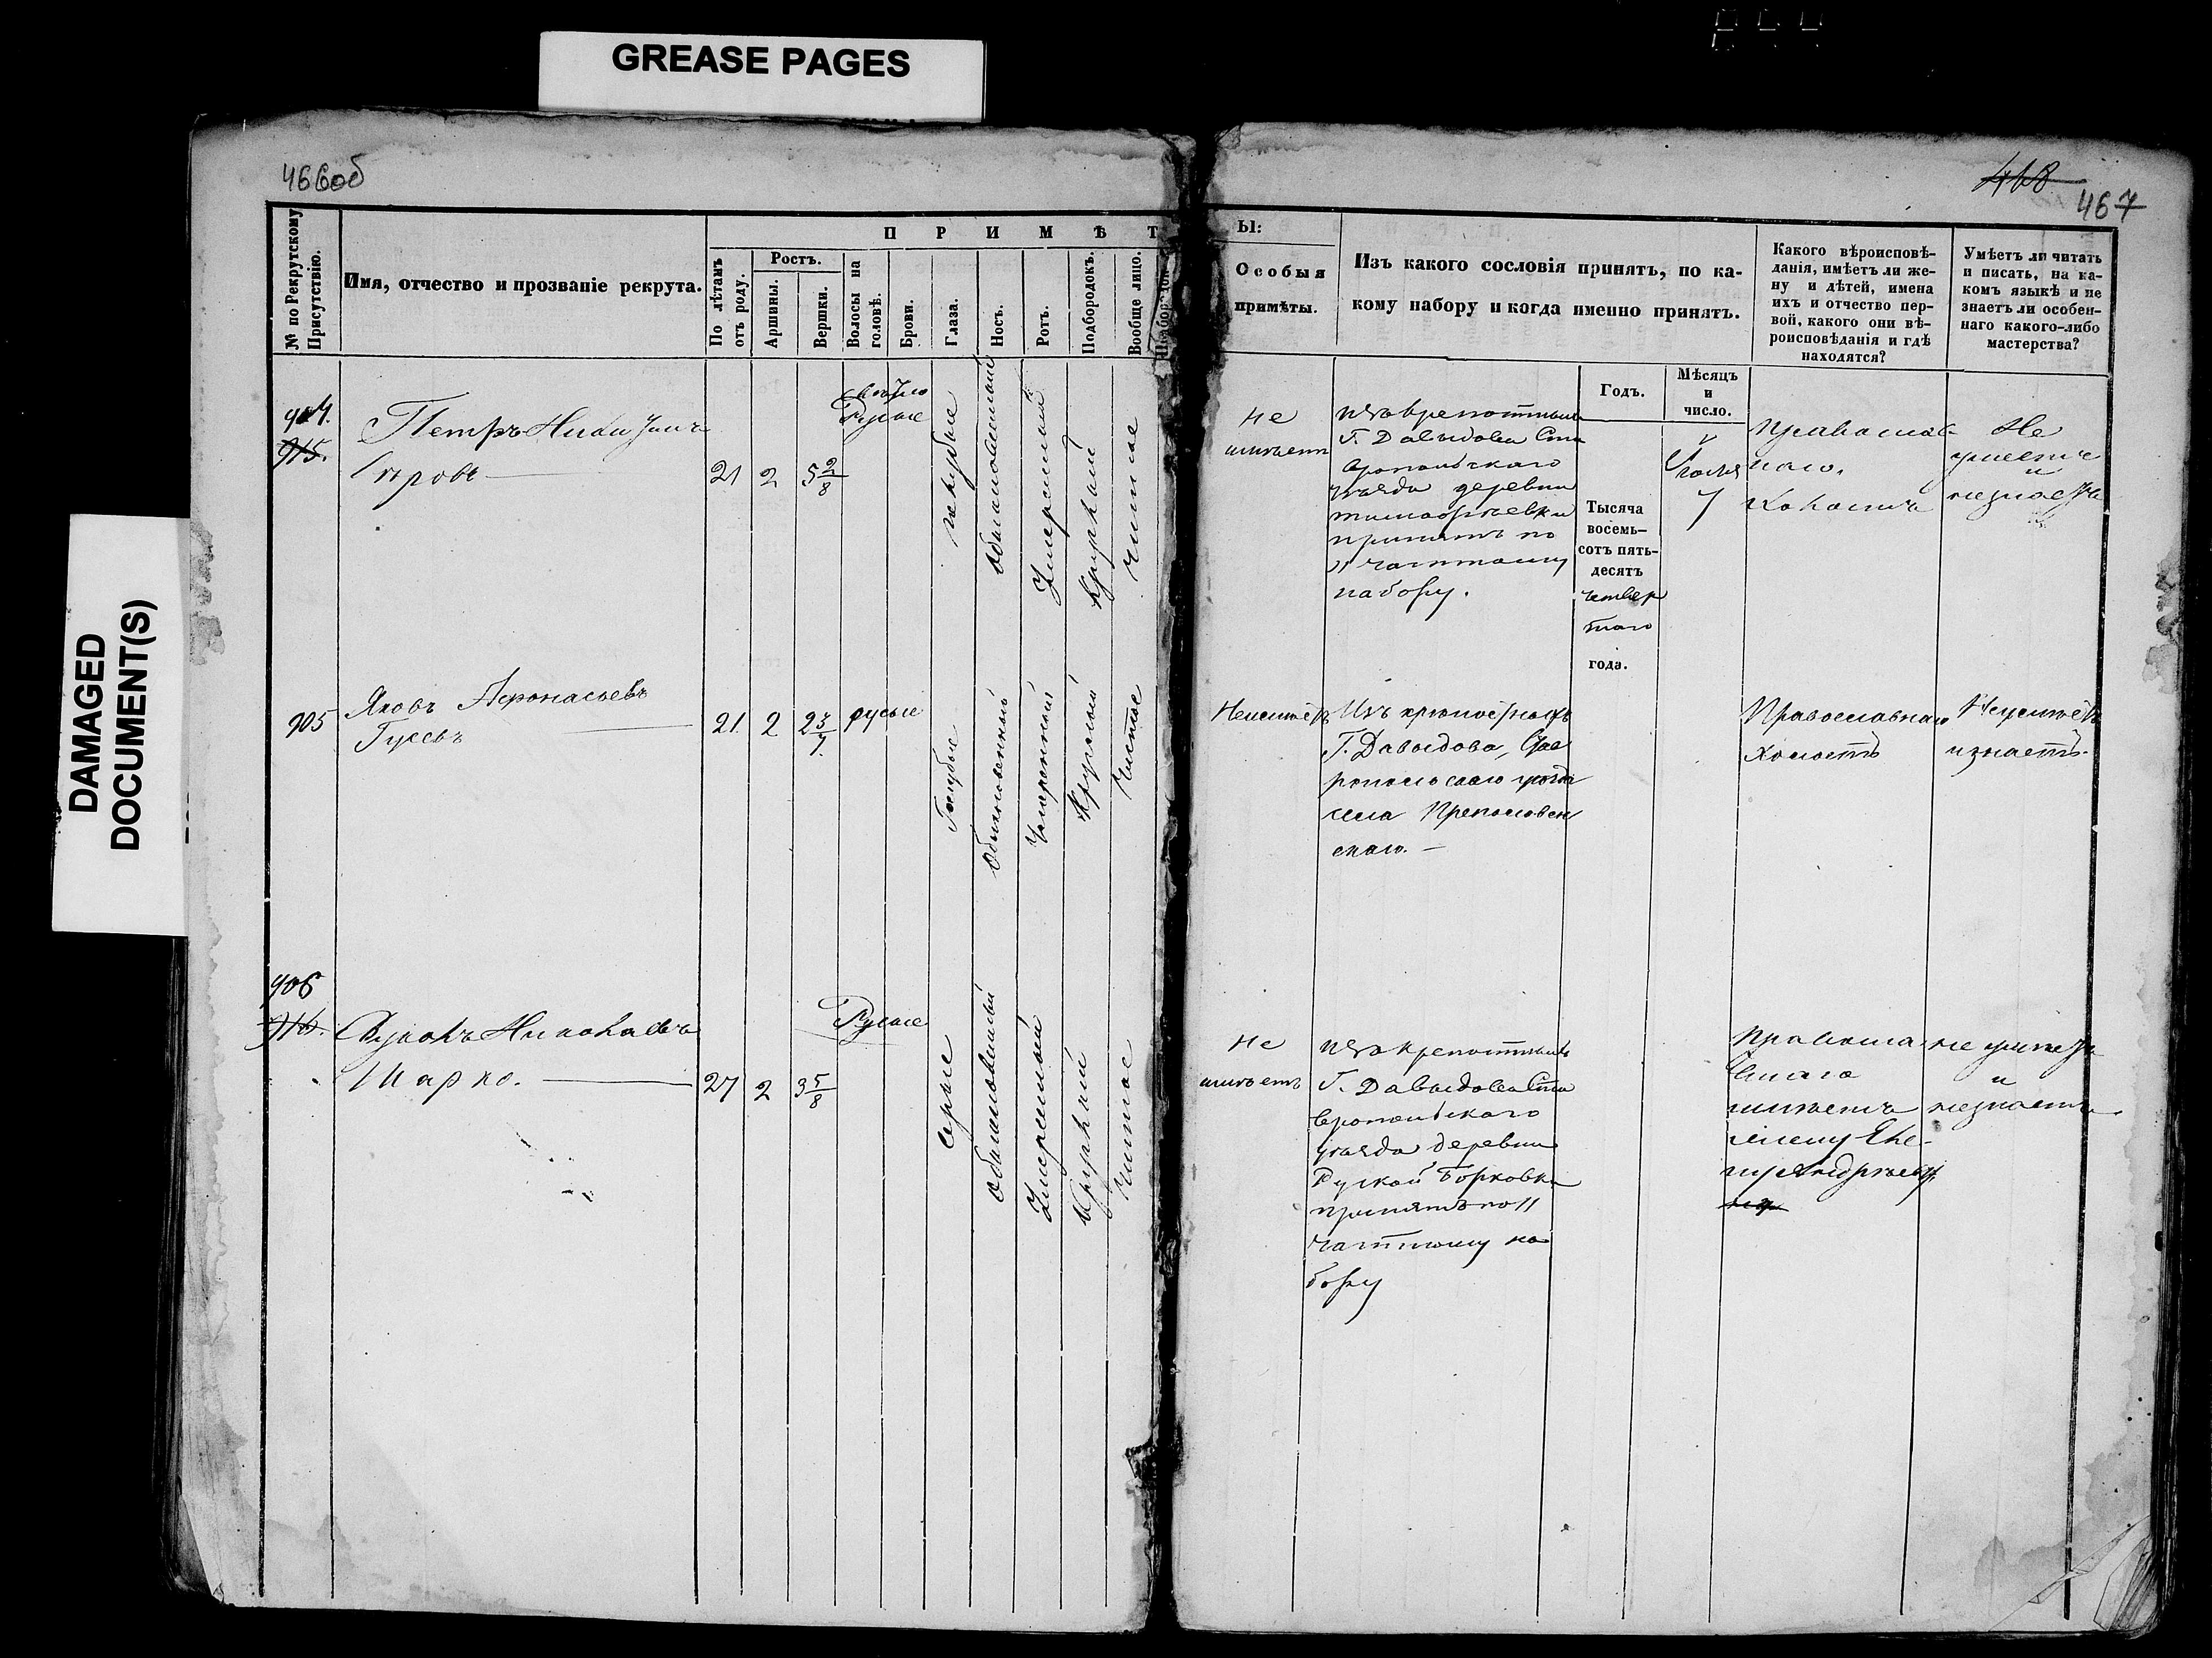 GREASE PAGES
DAMAGED
DOCUMENT(S)
466об
468
467
№ по Рекрутскому
Присутствію.
Имя, отчество и прозваніе рекрута.
П Р И М Ѣ Т
По лѣтамъ
отъ роду.
Ростъ.
Аршины.
Вершки.
Волосы на
головѣ.
Брови.
Глаза.
Носъ.
Ротъ.
Подбородокъ.
Вообще лицо.
Ы:
Особыя
примѣты.
Изъ какого сословія принятъ, по ка-
кому набору и когда именно принятъ.
Какого вѣроисповѣ-
данія, имѣетъ ли же-
ну и дѣтей, имена
ихъ и отчество пер-
вой, какого они вѣ-
роисповѣданія и гдѣ
находятся?
Умѣетъ ли читать
и писать, на ка-
комъ языкѣ и не
знаетъ ли особен-
наго какого-либо
мастерства?
Годъ.
Мѣсяцъ
и
число.
904.
915.
Петръ
21
2
5 2/8
свѣтло
Русые
обыкновенный
умеренный
круглой
чистое
Не
имѣетъ
изъ крепостныхъ
Г. Давыдова Ста
вропольскаго
уѣзда деревни
тимофѣевки
принятъ по
11 частному
набору.
Тысяча
восемь-
сотъ пять-
десятъ
четвер
таго
года.
7
Православ
наго.
холостъ
Не
умеетъ
и
незнаетъ
905
Яковъ Афонасьевъ
Гусевъ
21
2
2 3/7.
русые
Голубые
Обыкновенный
Умеренный
Круглый
Чистое
Неимѣетъ
Изъ крѣпостныхъ
Г. Давыдова, Став
ропольскаго уѣзда
села Преполовен
скаго. —
Православнаго
холостъ
Неумѣетъ
изнаетъ.
906
916.
Николаевъ
Шарко.
27
2
3 5/8
Русые
серые
обыкновенный
Умеренный
круглый
Чистое
Не
имѣетъ
изъ крепостныхъ
Г. Давыдова Ста
вропольскаго
уѣзда деревни
Руской Борковки
принятъ по 11
частному на
бору
Правосла
внаго
имѣетъ
жену
Андрѣев
не умѣетъ
и
незнаетъ.